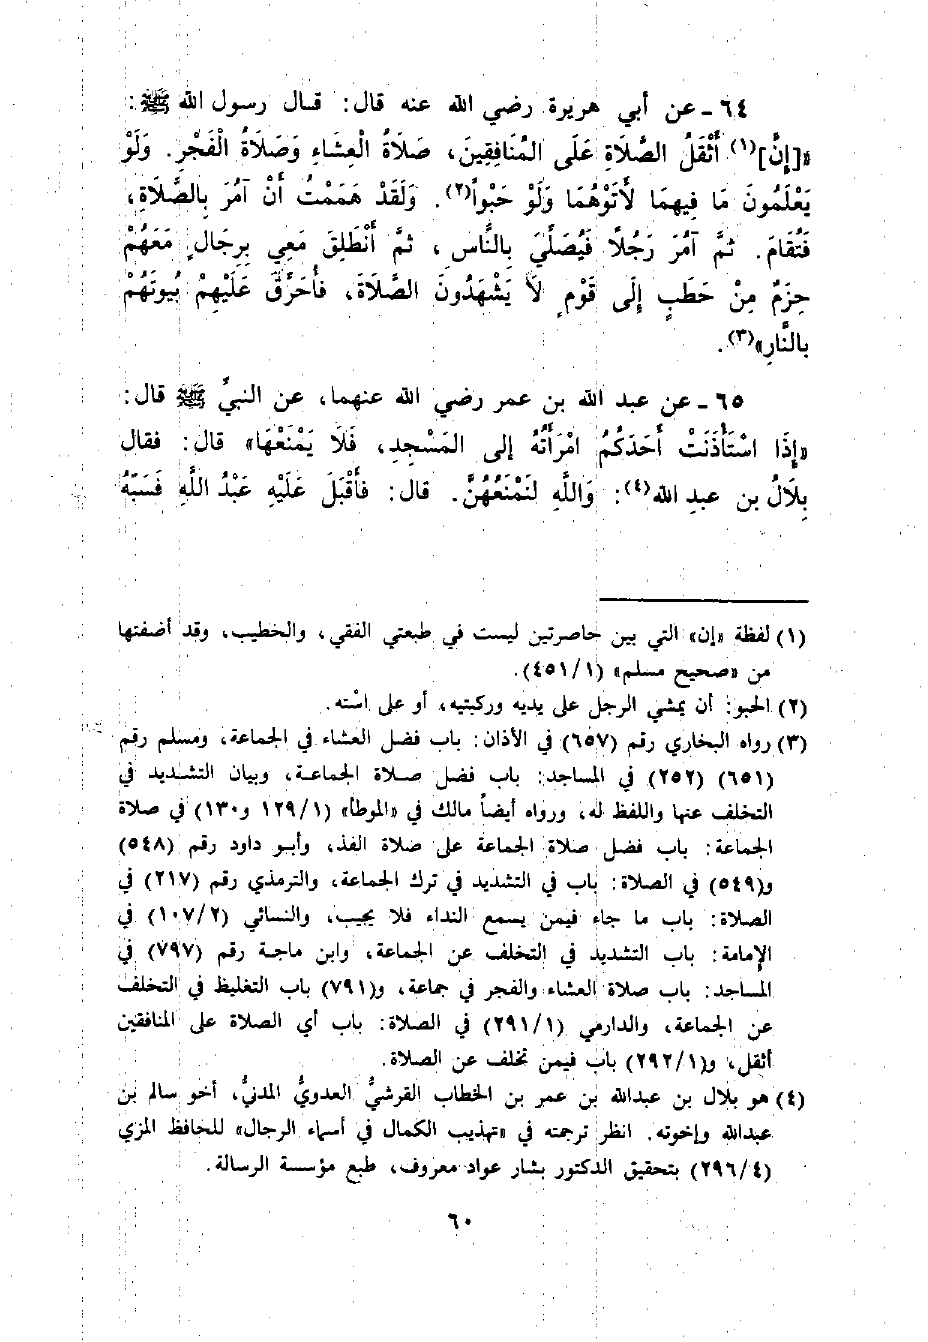 ٦٤ ـ عن أبي هريرة رضي الله عنه قال: قال رسول الله ﷺ:
«[إِنَّ](١) أَثْقَلُ الصَّلَاةِ عَلَى المُنَافِقِينَ، صَلَاةُ الْعِشَاءِ وَصَلَاةُ الْفَجْرِ. وَلَوْ
يَعْلَمُونَ مَا فِيهِمَا لأَتَوْهُمَا وَلَوْ حَبْواً(٢). وَلَقَدْ هَمَمْتُ أَنْ آمُرَ بِالصَّلَاةِ،
فَتُقَامَ. ثمَّ آمُرَ رَجُلًا فَيُصَلِّيَ بِالنَّاسِ، ثمَّ أَنْطَلِقَ مَعِي بِرِجَالٍ مَعَهُمْ
حِزَمٌ مِنْ حَطَبٍ إِلَى قَوْمٍ لاَ يَشْهَدُونَ الصَّلَاةَ، فأُحَرِّقَ عَلَيْهِمْ بُيوتَهُمْ
بالنَّارِ»(٣).
٦٥ ـ عن عبد الله بن عمر رضي الله عنهما، عن النبيِّ ﷺ قال:
«إِذَا اسْتَأْذَنَتْ أَحَدَكُمُ امْرَأَتُهُ إلى المَسْجِدِ، فَلَا يَمْنَعْهَا» قال: فقال
بِلَالُ بن عبدِ الله(٤): وَاللَّهِ لنَمْنَعُهُنَّ. قال: فأَقْبَلَ عَلَيْهِ عَبْدُ اللَّهِ فَسَبَّهُ
(١) لفظة «إن» التي بين حاصرتين ليست في طبعتي الفقي، والخطيب، وقد أضفتها
من «صحيح مسلم» (٤٥١/١).
(٢) الحبو: أن يمشي الرجل على يديه وركبتيه، أو على اسْته.
(٣) رواه البخاري رقم (٦٥٧) في الأذان: باب فضل العشاء في الجماعة، ومسلم رقم
(٦٥١) (٢٥٢) في المساجد: باب فضل صلاة الجماعة، وبيان التشديد في
التخلف عنها واللفظ له، ورواه أيضاً مالك في «الموطأ» (١٢٩/١ و١٣٠) في صلاة
الجماعة: باب فضل صلاة الجماعة على صلاة الفذ، وأبو داود رقم (٥٤٨)
و(٥٤٩) في الصلاة: باب في التشديد في ترك الجماعة، والترمذي رقم (٢١٧) في
الصلاة: باب ما جاء فيمن يسمع النداء فلا يجيب، والنسائي (١٠٧/٢) في
الإمامة: باب التشديد في التخلف عن الجماعة، وابن ماجة رقم (٧٩٧) في
المساجد: باب صلاة العشاء والفجر في جماعة، و(٧٩١) باب التغليظ في التخلف
عن الجماعة، والدارمي (٢٩١/١) في الصلاة: باب أي الصلاة على المنافقين
أثقل، و(٢٩٢/١) باب فيمن تخلف عن الصلاة.
(٤) هو بلال بن عبدالله بن عمر بن الخطاب القرشيُّ العدويُّ المدنيُّ، أخو سالم بن
عبدالله وإخوته. انظر ترجمته في «تهذيب الكمال في أسماء الرجال» للحافظ المزي
(٢٩٦/٤) بتحقيق الدكتور بشار عواد معروف، طبع مؤسسة الرسالة.
٦٠